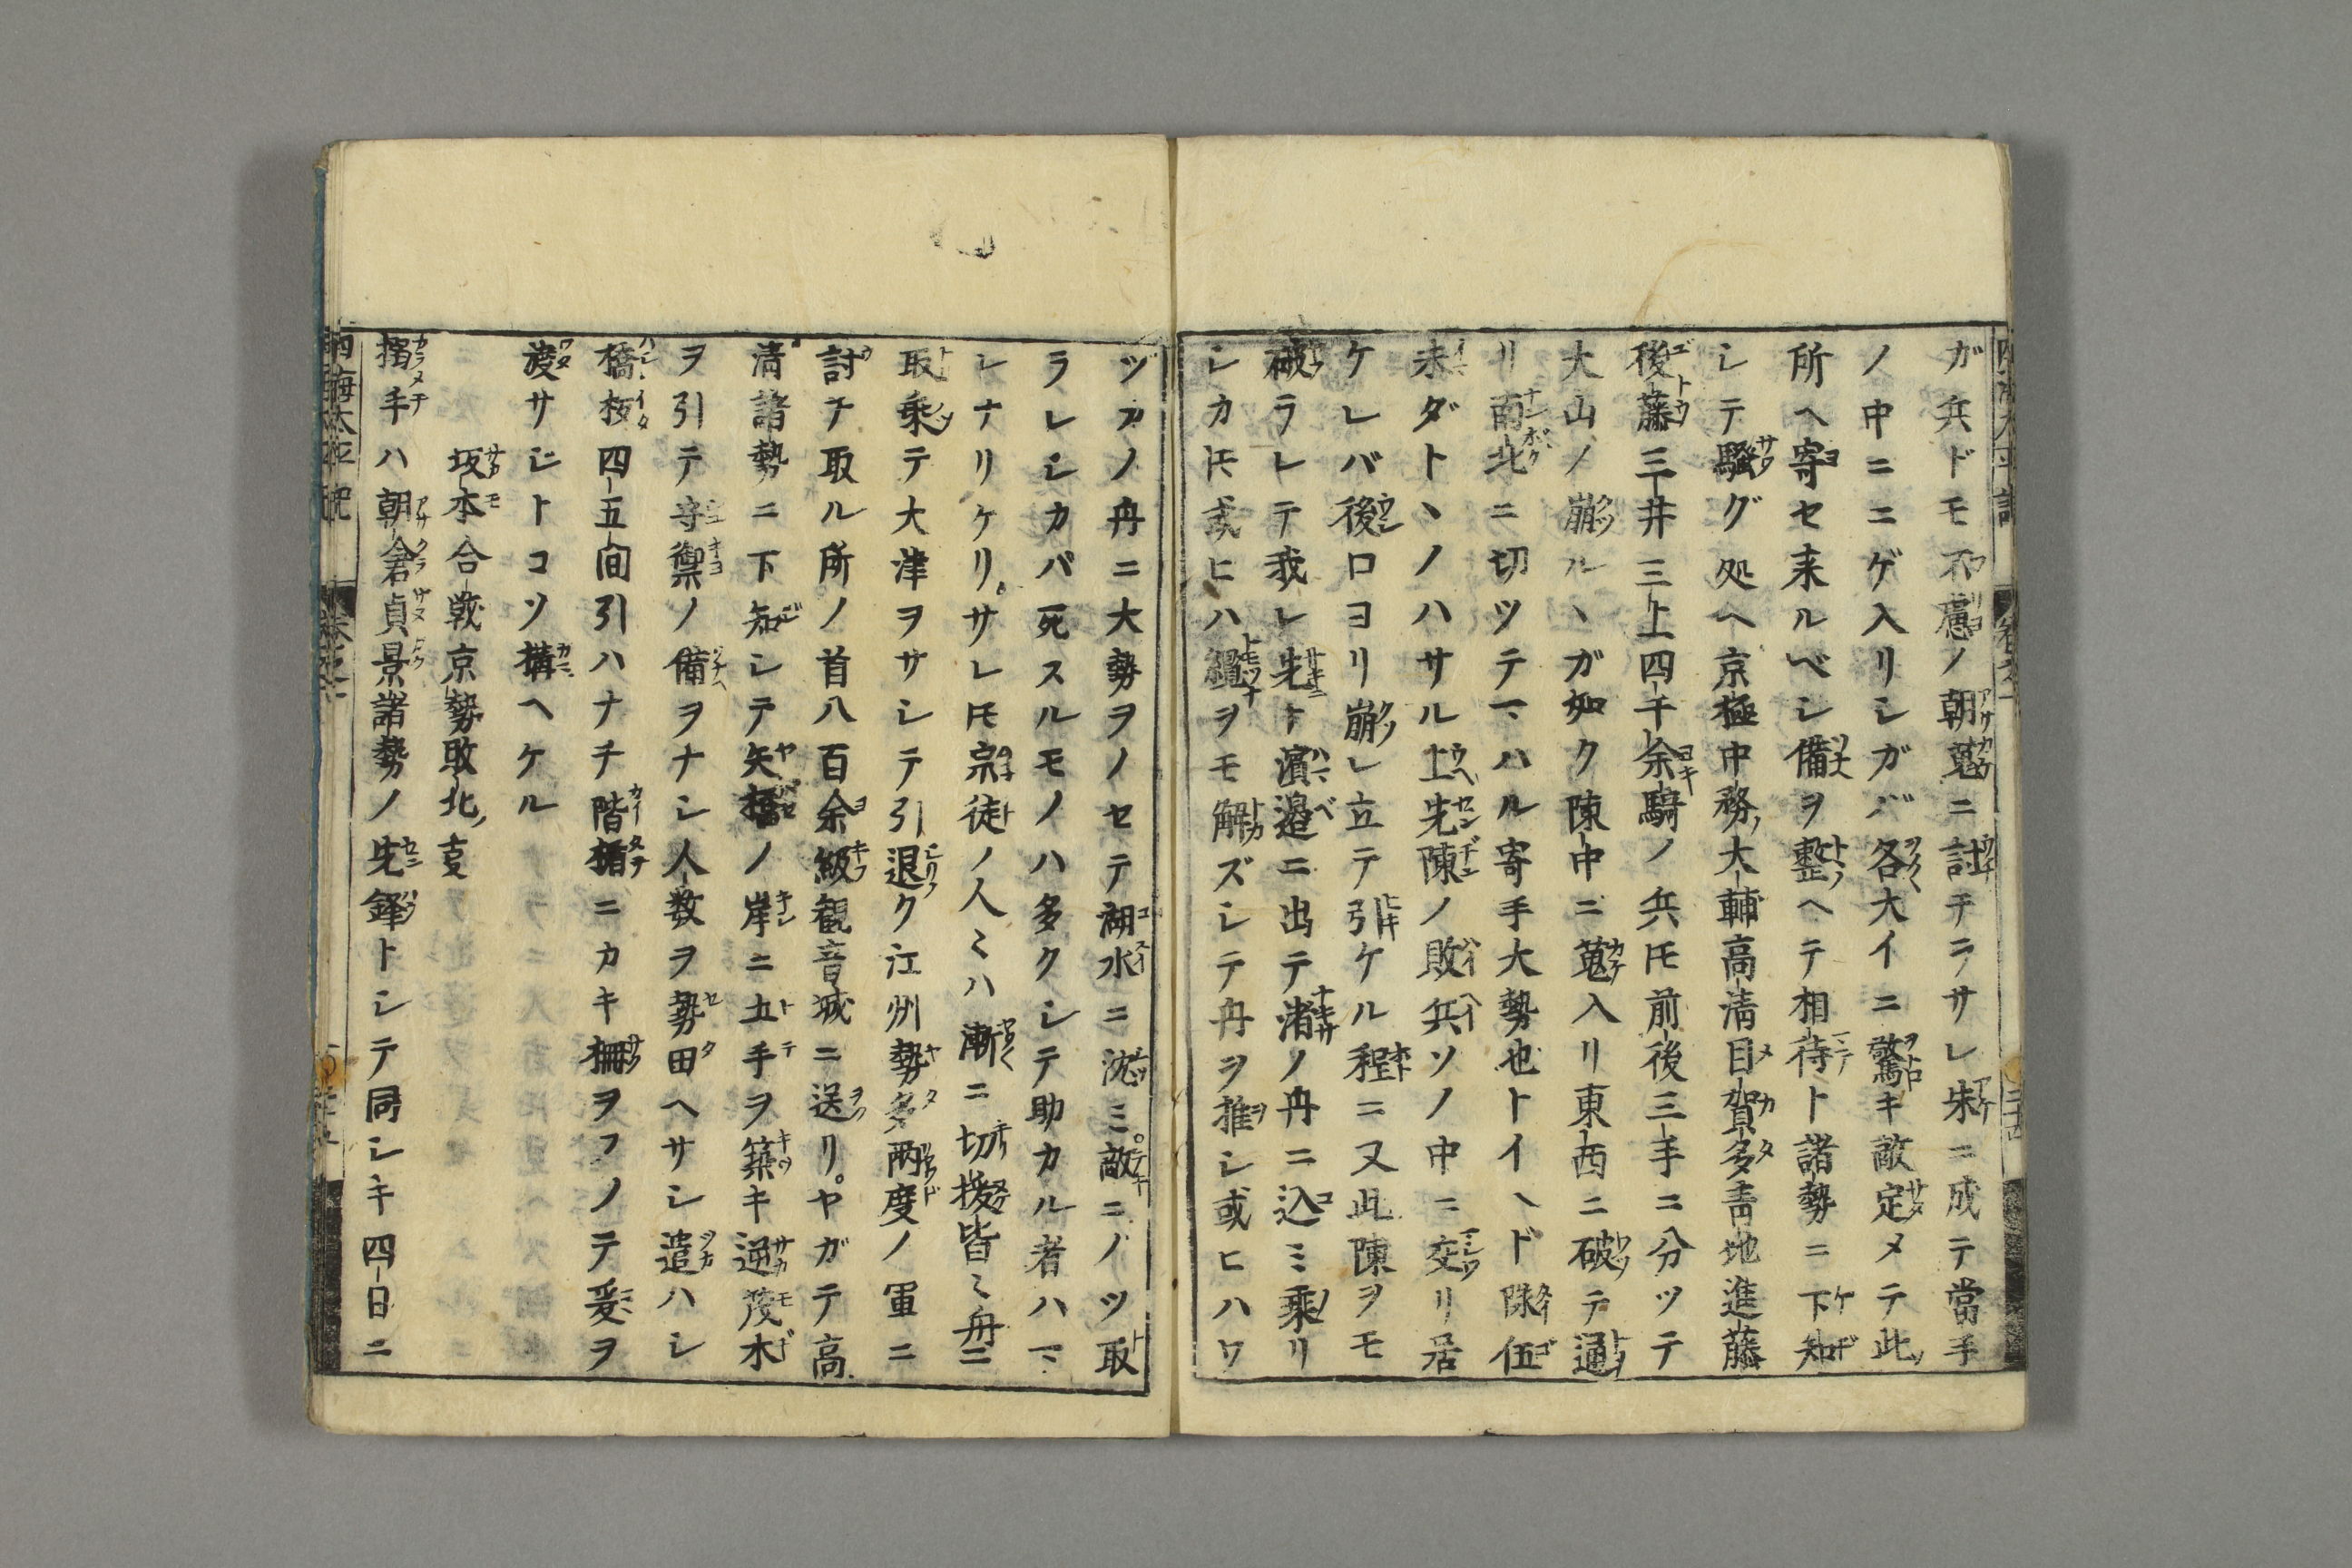 ガ兵ドモ不慮ノ朝蒐ニ討チラサレ朱ニ成テ當手
ノ中ニニゲ入リシガバ各大イニ驚キ敵定メテ此
所ヘ寄セ来ルベシ備ヲ整ヘテ相待ト諸勢ニ下知
シテ騒グ処ヘ京極中務大輔高清目賀多青地進藤
後藤三井三上四千余騎ノ兵𪜈前後三手ニ分ツテ
大山ノ崩ルヽガ如ク陳中ニ蒐入リ東西ニ破テ通
リ南北ニ切ツテマハル寄手大勢也トイヘド隊伍
未ダトヽノハサル上先陳ノ敗兵ソノ中ニ交リ居
ケレバ後ロヨリ崩レ立テ引ケル程ニ又此陳ヲモ
破ラレテ我レ先ト濱邉ニ出テ渚ノ舟ニ込ミ乗リ
シカ𪜈或ヒハ纜ヲモ解ズシテ舟ヲ推シ或ヒハワ
ヅカノ舟ニ大勢ヲノセテ湖水ニ沈ミ敵ニノツ取
ラレシカバ死スルモノハ多クシテ助カル者ハマ
レナリケリサレ𪜈宗徒ノ人〻ハ漸ニ切抜皆〻舟ニ
取乗テ大津ヲサシテ引退ク江州勢多両度ノ軍ニ
討チ取ル所ノ首八百余級観音城ニ送リヤガテ高
清諸勢ニ下知シテ矢橋ノ岸ニ土手ヲ築キ逆茂木
ヲ引テ守禦ノ備ヲナシ人数ヲ勢田ヘサシ遣ハシ
橋板四五間引ハナチ階楯ニカキ柵ヲフノテ爰ヲ
渡サジトコソ構ヘケル
坂本合戦京勢敗北ノ㕝
搦手ハ朝倉貞景諸勢ノ先鋒トシテ同シキ四日ニ